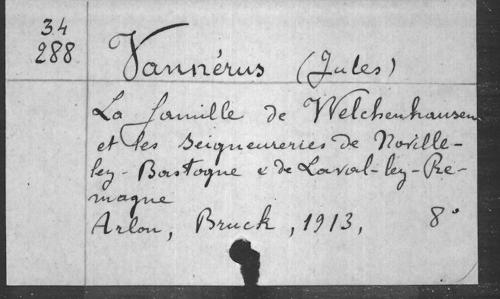 34
288
Vannérus (Jules)
La famille de Welchenhausen
et les seigneureries de Noville-
lez-Bastogne & de Laval-lez-Re-
magne
Arlon, Bruck, 1913, 8°